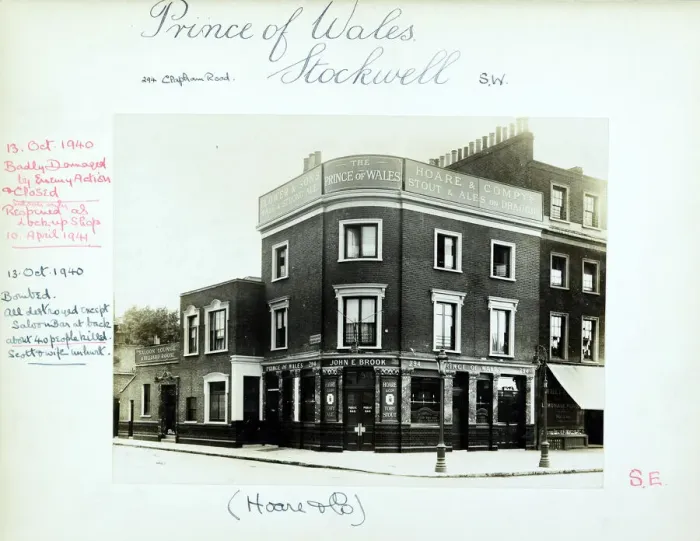 Prince of Wales.
Stockwell S.W.
294 Clapham Road.
13. Oct. 1940
Badly Damaged
by Enemy Action
& Closed
Reopened as
Lock-up Shop
10. April 1941
13. Oct. 1940
Bombed.
All destroyed except
Saloon Bar at back
about 40 people killed.
Scott & wife unhurt.
THE
PRINCE OF WALES
HOARE & COMPY'S
STOUT & ALES ON DRAUGHT
& SONS
PRINCE OF WALES 294
JOHN E BROOK
294 PRINCE OF WALES 294
HOARE
HOARE
STOUT
S.E.
(Hoare & Co)